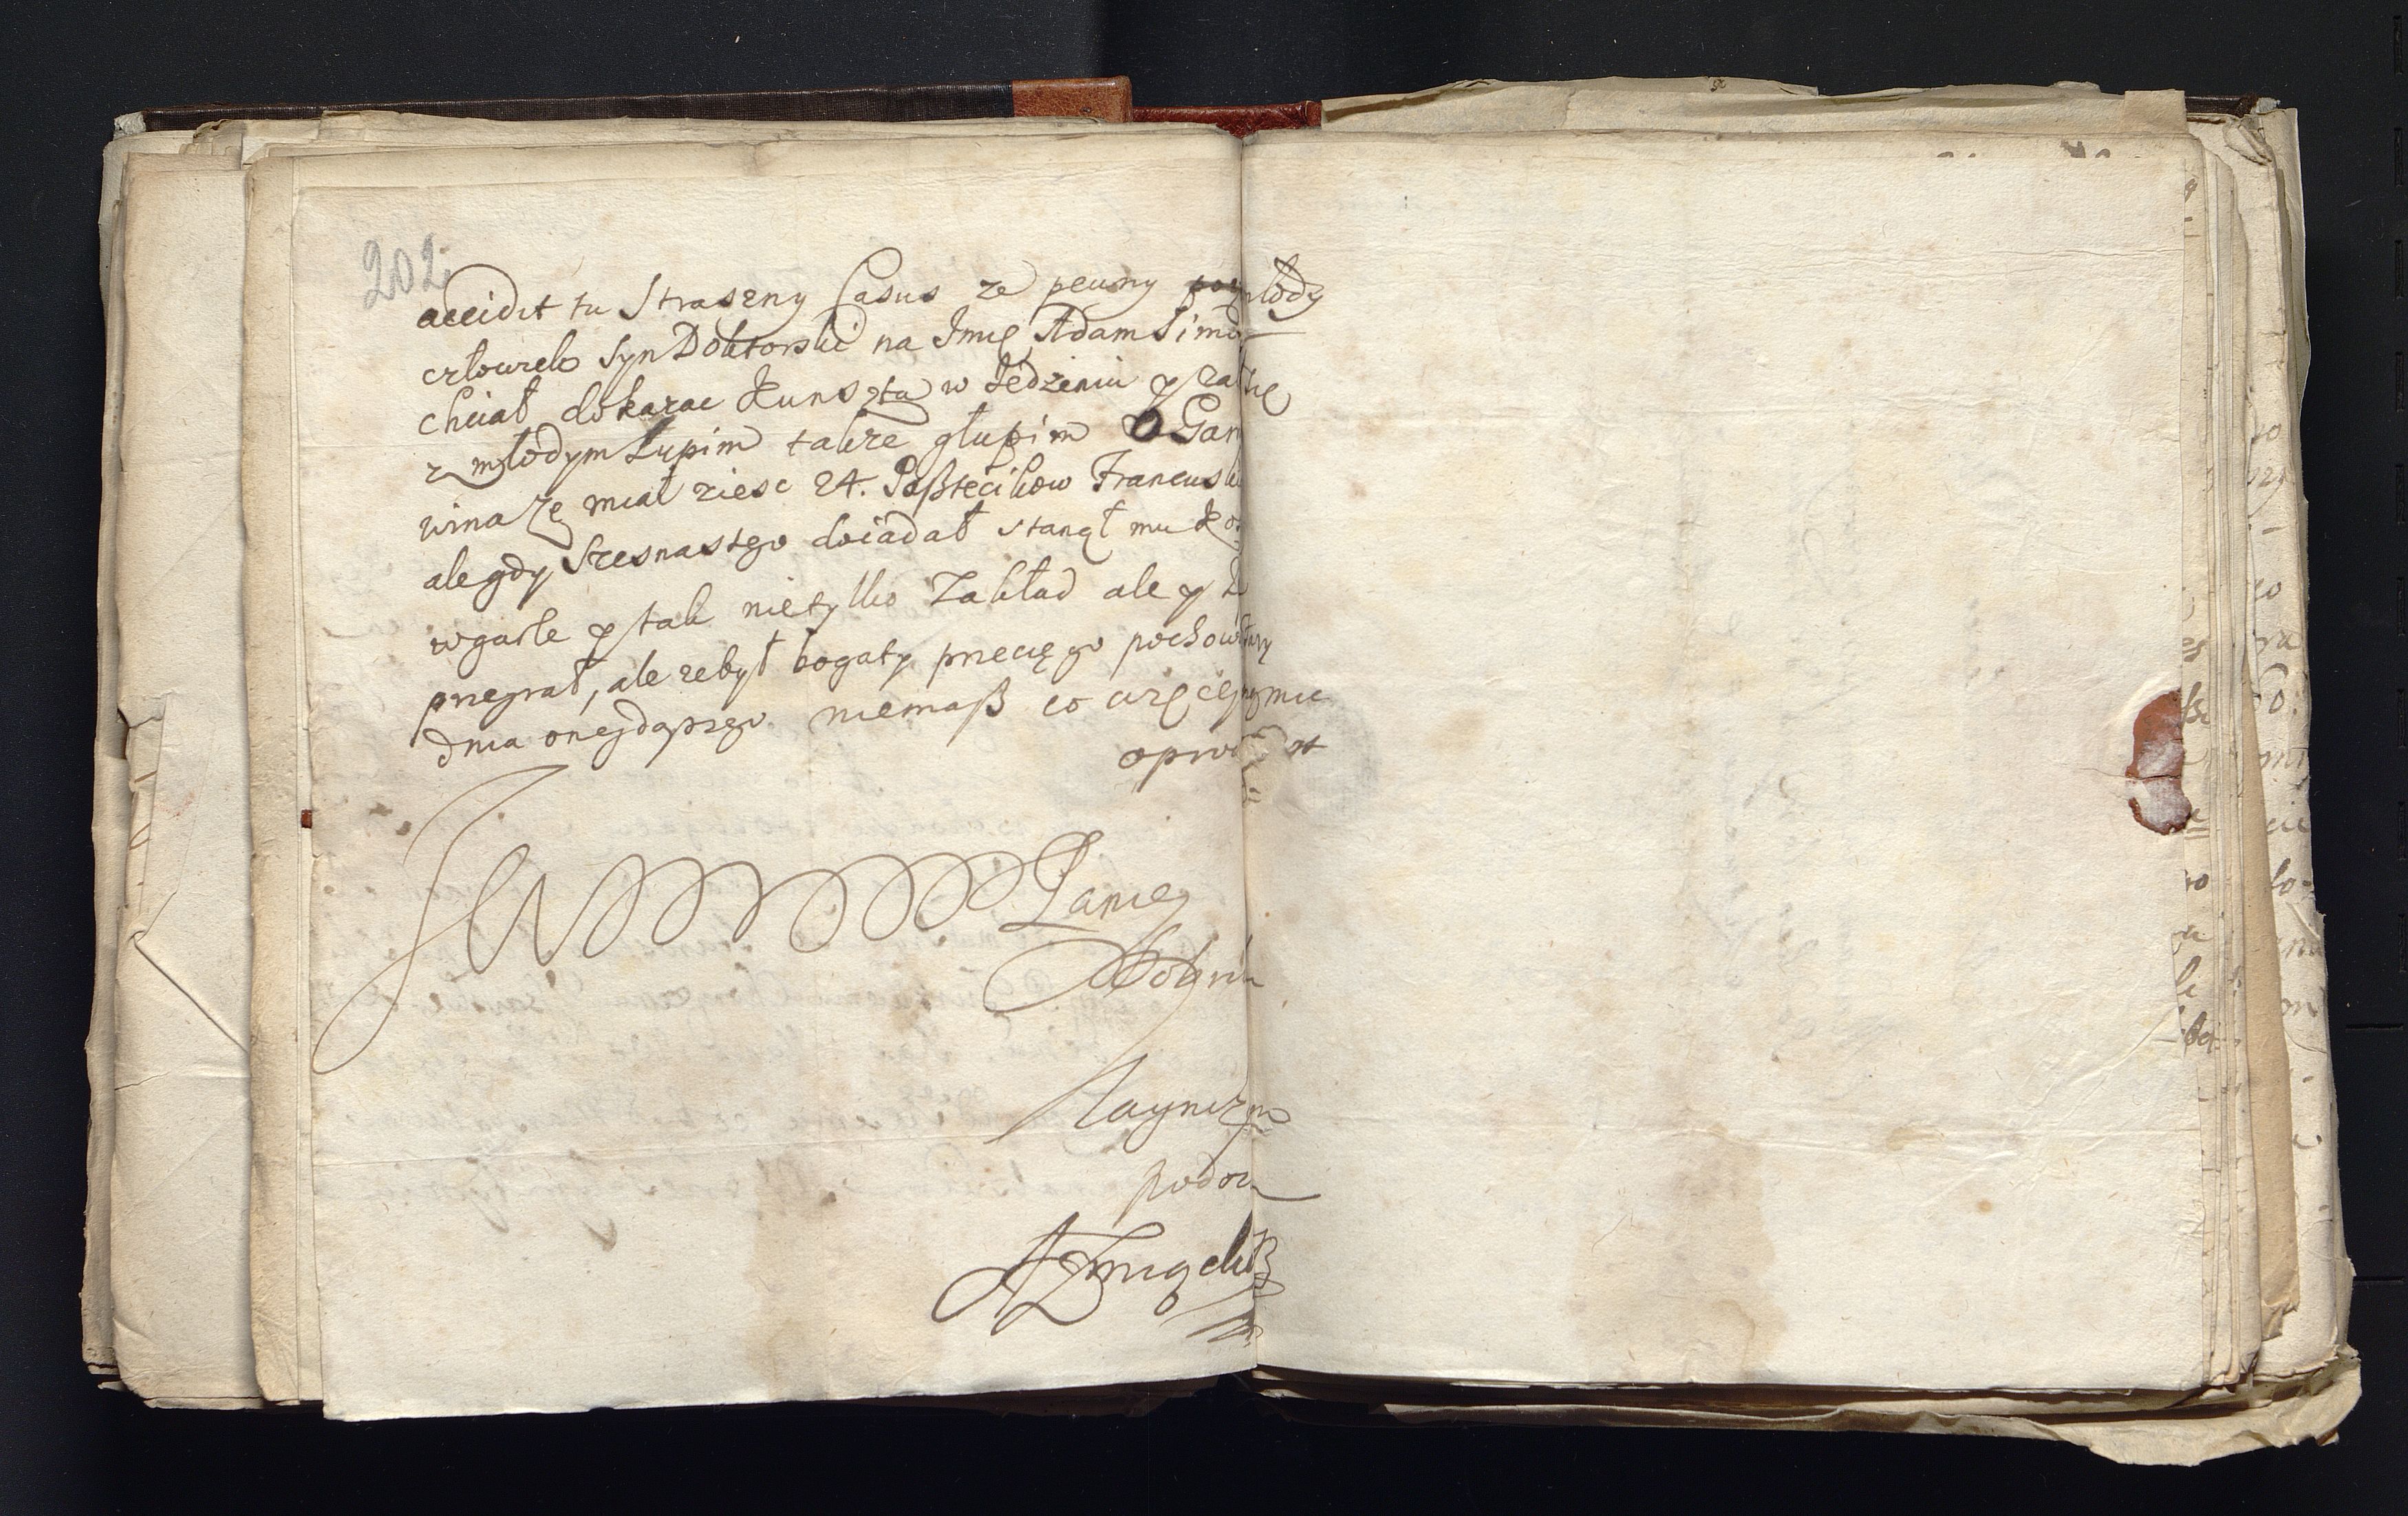 202
accidit tu Straszny Casus ze pewny młody
człowiek Syn Doktorski na Imię Adam Simo
chciał dokazac Kunsztu w Jedzeniu y za się
z młodym Lupim także głupim o Gar
wina ze miał ziesc 24. Paßtecikow Francuski
ale gdy Szesnastego doiadał stanął mu Ko
w garle y tak nie tylko Zakład ale y
przegrał, ale ze był bogaty przecię go pochow
dnia onegdayszego niemaß co więcey
opro
Paniey
Dobrod
Nayniższ
podn